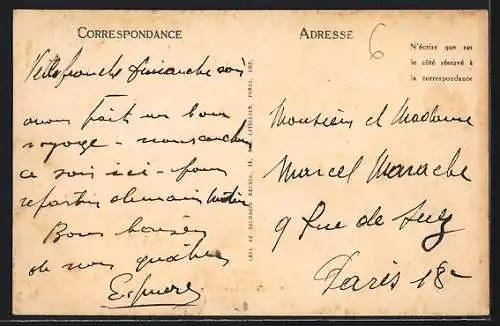 CORRESPONDANCE
Villefranche Dimanche soir
avons fait un bon
voyage - nous couchons
ce soir ici - pour
repartir demain matin
Bons baisers
de nous quatre
ADRESSE
6
N'écrire que sur
le côté réservé à
la correspondance
Monsieur et Madame
Marcel Marache
9 Rue de Suez
Paris 18e